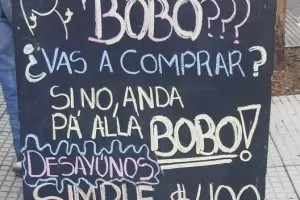 BOBO???
¿VAS A COMPRAR?
SI NO, ANDA
PÁ ALLA BOBO!
DESAYUNOS
SIMPLE $400